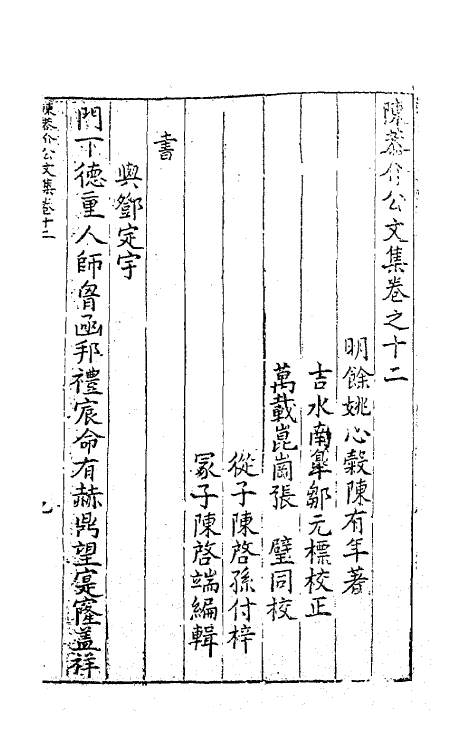 陳恭介公文集卷之十二
明餘姚心榖陳有年著
吉水南臯鄒元標校正
萬載崑崗張 璧同校
從子陳啓孫付梓
冢子陳啓端編輯
書
與鄧定宇
門下德重人師胥函邦禮宸命有赫鼎望寔窿盖祥
陳恭介公文集卷十二